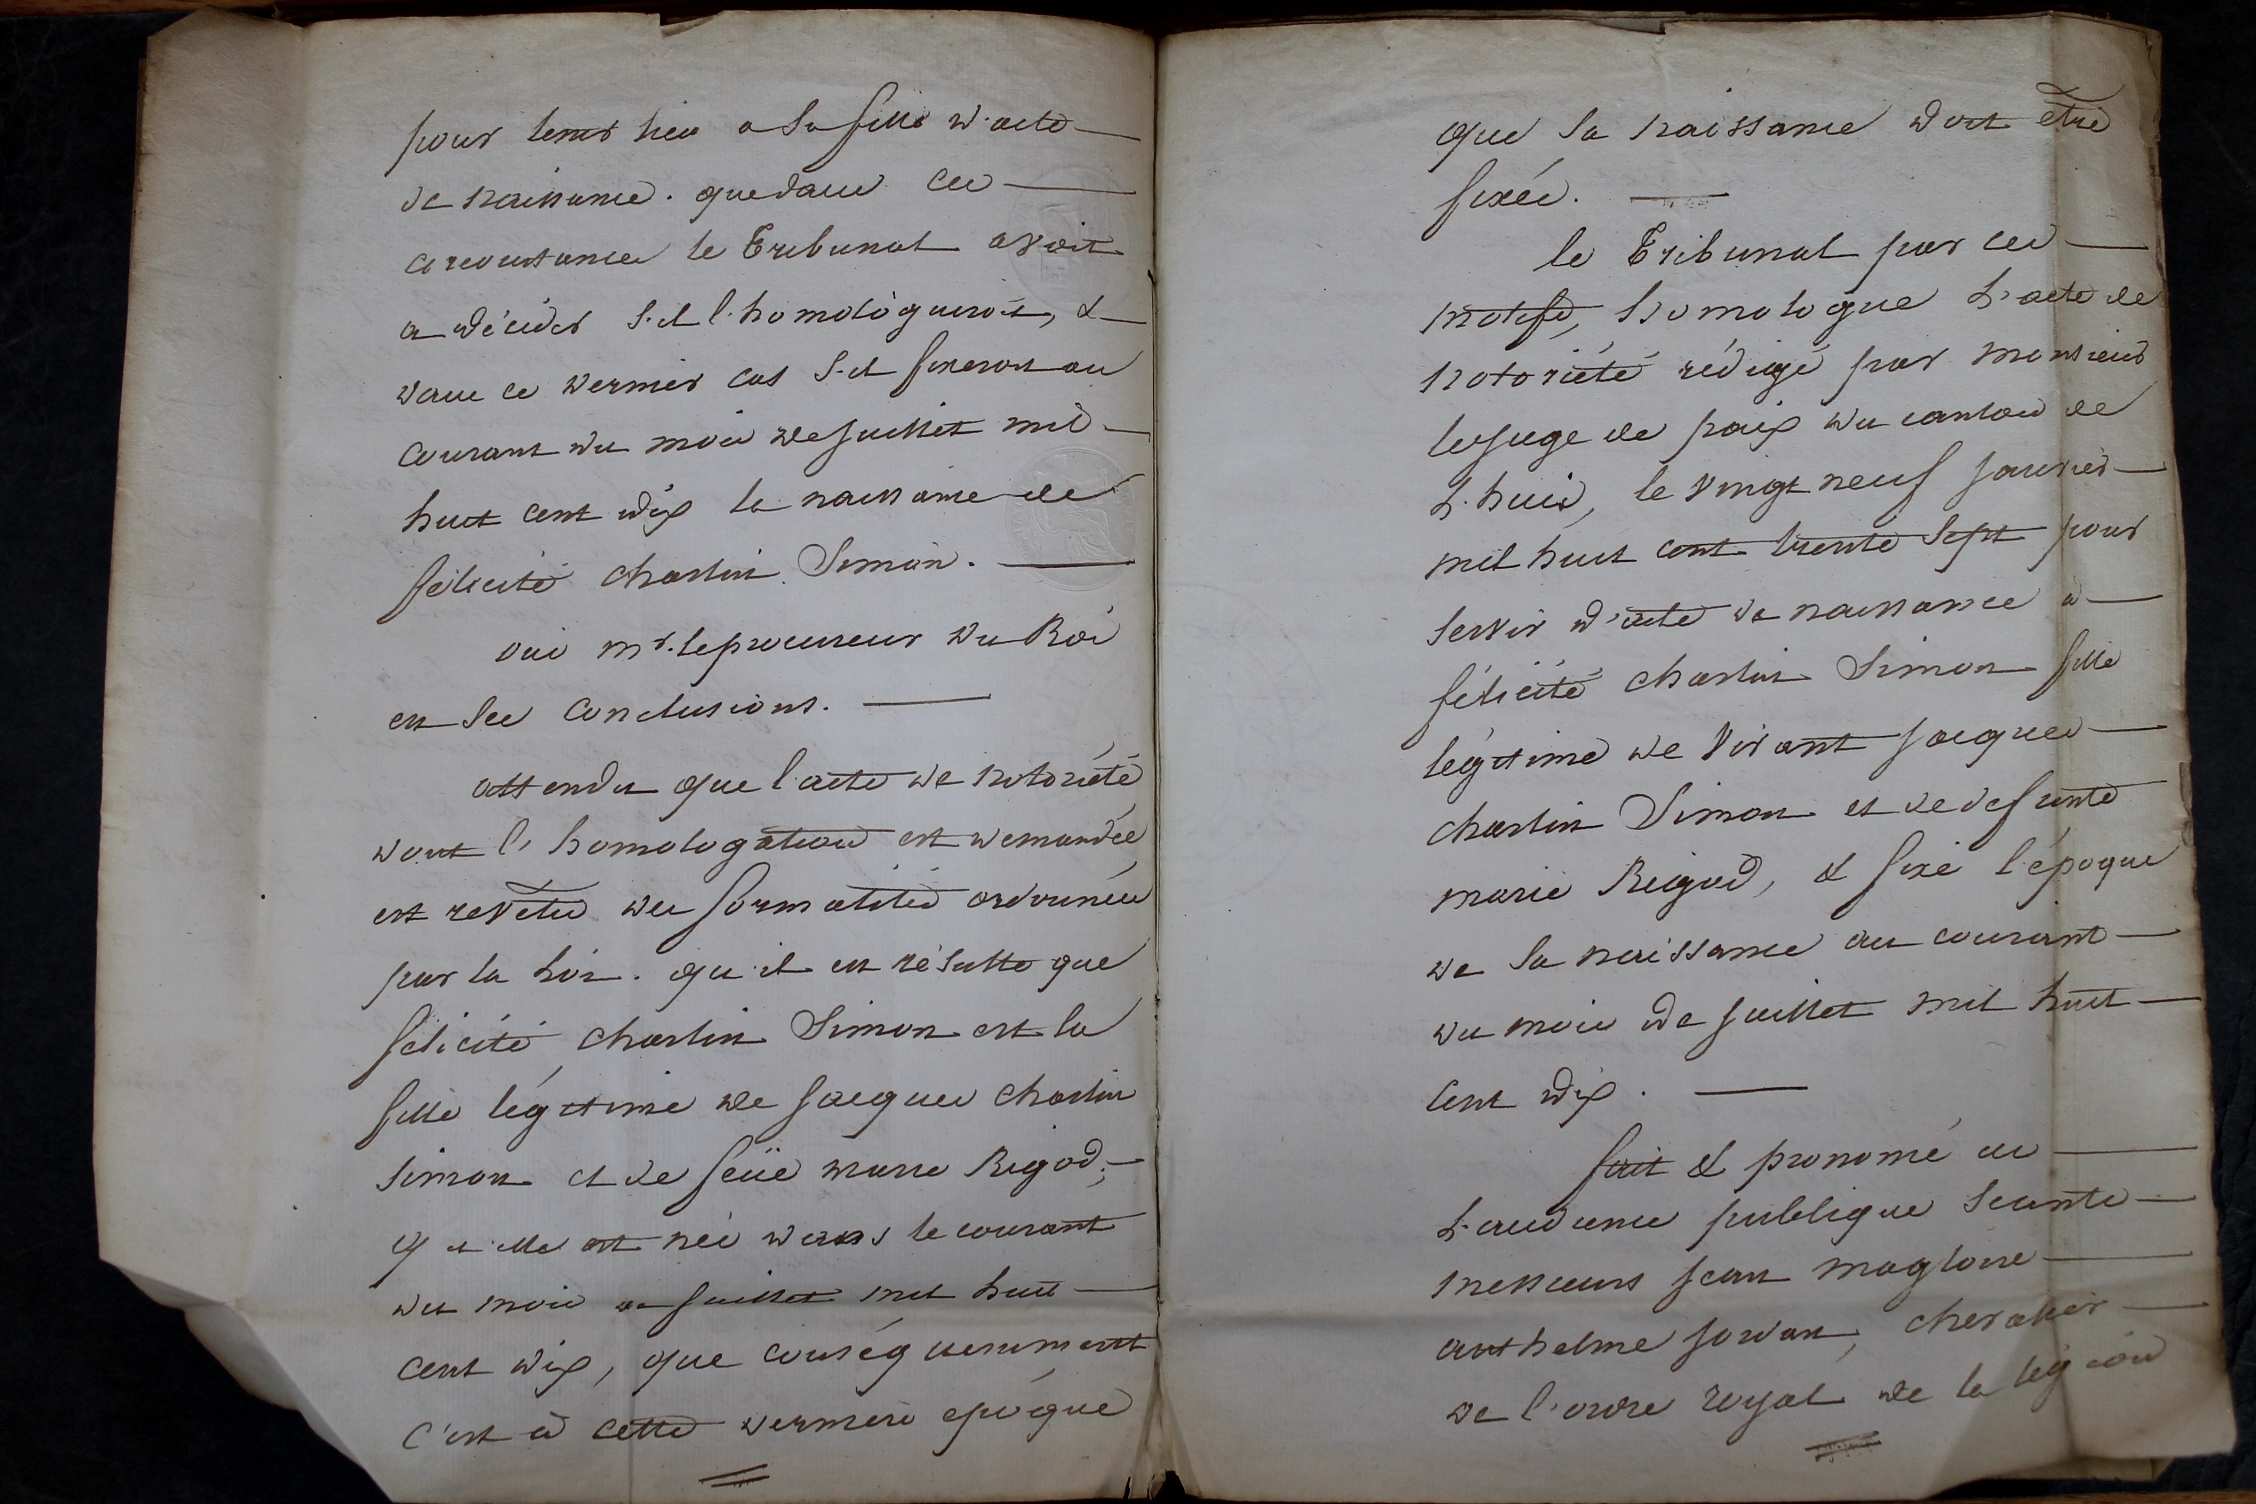 pour tenir lieu a sa fille d'acte
de naissance. que dans ces
circonstances le Tribunal avoit
a décider s'il l'homologuerait, &
dans ce dernier cas s'il fixeroit au
courant du mois de Juillet mil
huit cent dix la naissance de
félicité charlin Simon.
oui mr. le procureur du Roi
en ses conclusions.
attendu que l'acte de notoriété
dont l'homologation est demandée
est revetu des formalités ordonnées
par la loi. qu'il en résulte que
félicité charlin Simon est la
fille légitime de Jacques charlin
Simon et de feüe marie Rigod;
qu'elle est née dans le courant
du mois de Juillet mil huit
cent dix, que conséquemment
c'est à cette dernière epoque
que sa naissance doit être
fixée.
le Tribunal par ces
motifs, homologue L'acte de
notoriété rédigé par monsieur
le Juge de paix du canton de
L'huis, le vingt neuf Janvier
mil huit cent trente sept pour
servir d'acte de naissance à
félicité charlin Simon fille
légitime de vivant Jacques
charlin Simon et de defunte
marie Rigod, & fixe l'époque
de sa naissance au courant
du mois de Juillet mil huit
cent dix.
fait & prononcé en
L'audience publique séante
messieurs Jean magloire
anthelme Jordan, chevalier
de l'ordre royal de la légion